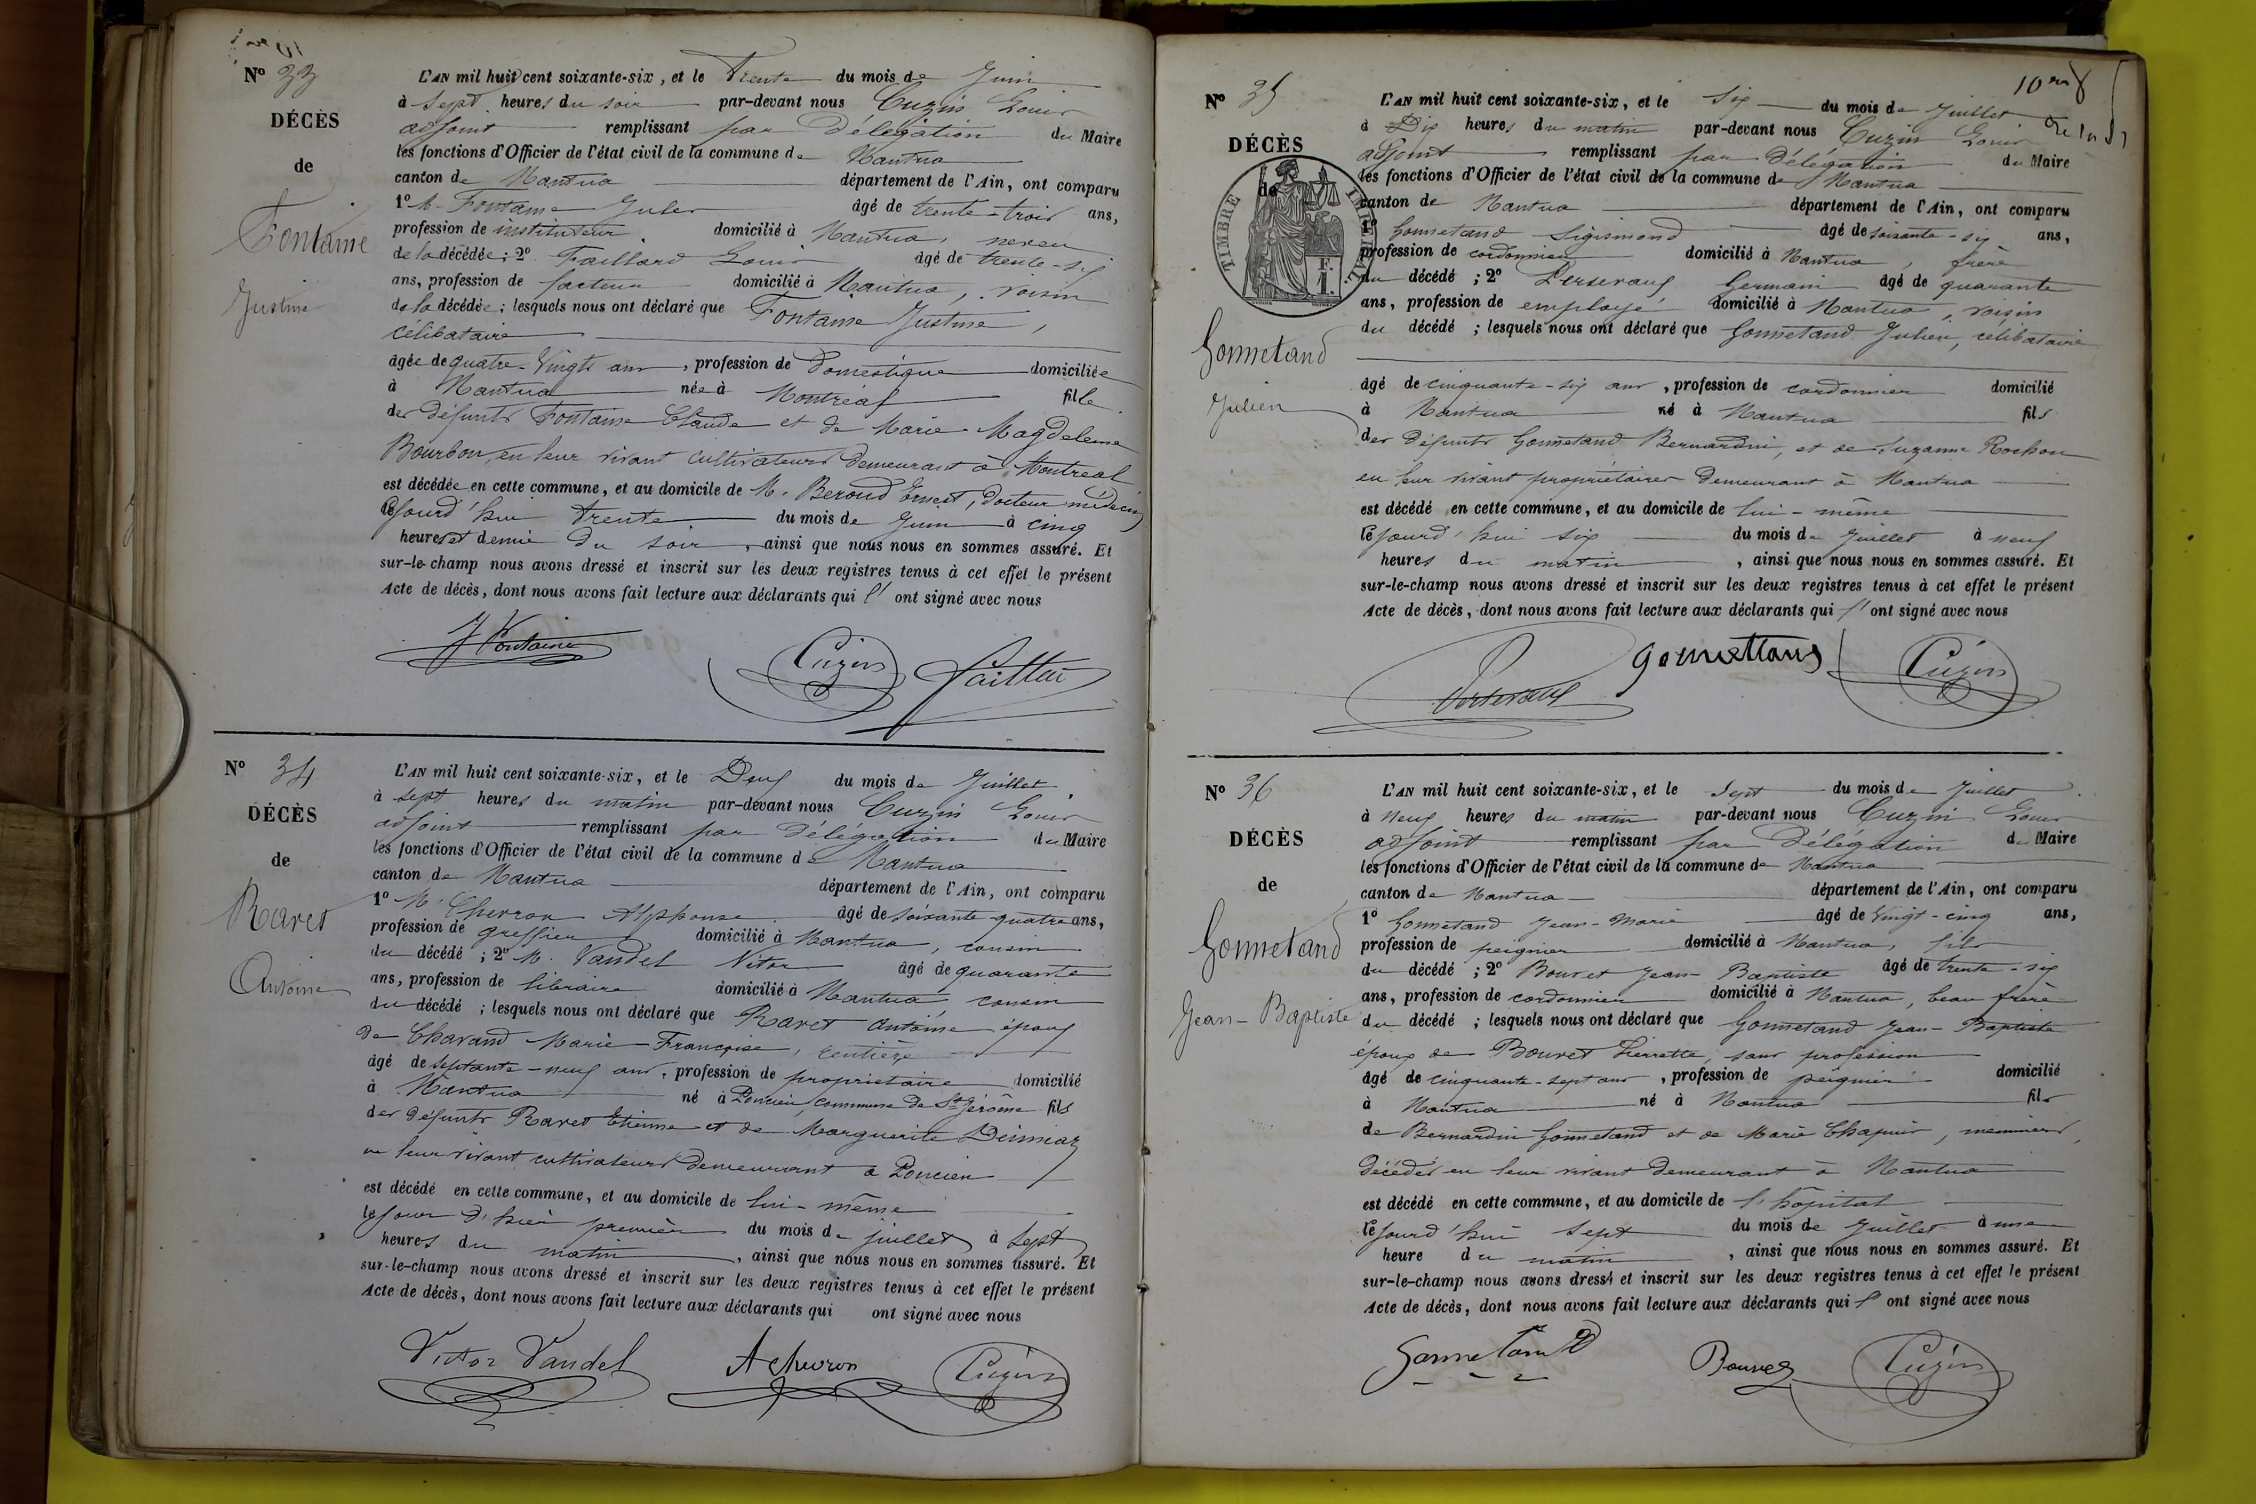 N° 33
DÉCÈS
de
Fontaine
Justine
L'AN mil huit cent soixante-six, et le Trente du mois de Juin
à sept heures du soir par-devant nous Cuzin Louis
adjoint remplissant par délégation du Maire
les fonctions d'Officier de l'état civil de la commune de Nantua
canton de Nantua département de l'Ain, ont comparu
1° M. Fontaine Jules âgé de trente-trois ans,
profession de instituteur domicilié à Nantua, neveu
de la décédée; 2° Faillard Louis âgé de trente-six
ans, profession de facteur domicilié à Nantua, voisin
de la décédée; lesquels nous ont déclaré que Fontaine Justine,
célibataire
âgée de quatre-Vingts ans, profession de domestique domiciliée
à Nantua née à Montréal fille
des défunts Fontaine Claude et de Marie-Magdeleine
Bourbon, en leur vivant cultivateurs demeurant à Montreal
est décédée en cette commune, et au domicile de M. Beroud Ernest, docteur médecin
cejourd'hui trente du mois de Juin à cinq
heures et demie du soir, ainsi que nous nous en sommes assuré. Et
sur-le-champ nous avons dressé et inscrit sur les deux registres tenus à cet effet le présent
Acte de décès, dont nous avons fait lecture aux déclarants qui l' ont signé avec nous
J Fontaine Cuzin Faillar
N° 34
DÉCÈS
de
Ravet
Antoine
L'AN mil huit cent soixante-six, et le Deux du mois de Juillet
à sept heures du matin par-devant nous Cuzin Louis
adjoint remplissant par délégation du Maire
les fonctions d'Officier de l'état civil de la commune de Nantua
canton de Nantua département de l'Ain, ont comparu
1° M. Chevron Alphonse âgé de soixante-quatre ans,
profession de greffier domicilié à Nantua, cousin
du décédé; 2° M. Vandel Vitor âgé de quarante
ans, profession de libraire domicilié à Nantua cousin
du décédé; lesquels nous ont déclaré que Ravet Antoine époux
de Chavand Marie-Françoise, rentière
âgé de septante-neuf ans, profession de propriétaire domicilié
à Nantua né à Poncieu, commune de St Jérôme fils
des défunts Ravet Etienne et de Marguerite
en leur vivant cultivateurs demeurant à Poncieu
est décédé en cette commune, et au domicile de lui-même
le jour d'hier premier du mois de juillet à sept
heures du matin, ainsi que nous nous en sommes assuré. Et
sur-le-champ nous avons dressé et inscrit sur les deux registres tenus à cet effet le présent
Acte de décès, dont nous avons fait lecture aux déclarants qui ont signé avec nous
Victor Vandel A Chevron Cuzin
10
N° 35
DÉCÈS
de
TIMBRE IMPÉRIAL
Gonnetand
Julien
L'AN mil huit cent soixante-six, et le Six du mois de Juillet
à Dix heures du matin par-devant nous Cuzin Louis
adjoint remplissant par délégation du Maire
les fonctions d'Officier de l'état civil de la commune de Nantua
canton de Nantua département de l'Ain, ont comparu
1° Gonnetand Sigismond âgé de soixante-six ans,
profession de cordonnier domicilié à Nantua, frère
du décédé; 2° Perseraux Germain âgé de quarante
ans, profession de employé domicilié à Nantua, voisin
du décédé; lesquels nous ont déclaré que Gonnetand Julien, célibataire
âgé de cinquante-six ans, profession de cordonnier domicilié
à Nantua né à Nantua fils
des défunts Gonnetand Bernardin, et de Suzanne Rochon
en leur vivant propriétaires demeurant à Nantua
est décédé en cette commune, et au domicile de lui-même
cejourd'hui six du mois de Juillet à neuf
heures du matin, ainsi que nous nous en sommes assuré. Et
sur-le-champ nous avons dressé et inscrit sur les deux registres tenus à cet effet le présent
Acte de décès, dont nous avons fait lecture aux déclarants qui l' ont signé avec nous
Perseraux Gonnettans Cuzin
N° 36
DÉCÈS
de
Gonnetand
Jean-Baptiste
L'AN mil huit cent soixante-six, et le Sept du mois de Juillet
à Neuf heures du matin par-devant nous Cuzin Louis
adjoint remplissant par délégation du Maire
les fonctions d'Officier de l'état civil de la commune de Nantua
canton de Nantua département de l'Ain, ont comparu
1° Gonnetand Jean-Marie âgé de Vingt-cinq ans,
profession de peignier domicilié à Nantua, fils
du décédé; 2° Bouvet Jean-Baptiste âgé de trente-six
ans, profession de cordonnier domicilié à Nantua, beau frère
du décédé; lesquels nous ont déclaré que Gonnetand Jean-Baptiste
époux de Bouvet Pierrette, sans profession
âgé de cinquante-sept ans, profession de peignier domicilié
à Nantua né à Nantua fils
de Bernardin Gonnetand et de Marie Chapuis,
décédés en leur vivant demeurant à Nantua
est décédé en cette commune, et au domicile de l'hôpital
cejourd'hui sept du mois de Juillet à une
heure du matin, ainsi que nous nous en sommes assuré. Et
sur-le-champ nous avons dressé et inscrit sur les deux registres tenus à cet effet le présent
Acte de décès, dont nous avons fait lecture aux déclarants qui l' ont signé avec nous
Gonnetand Bouvet Cuzin